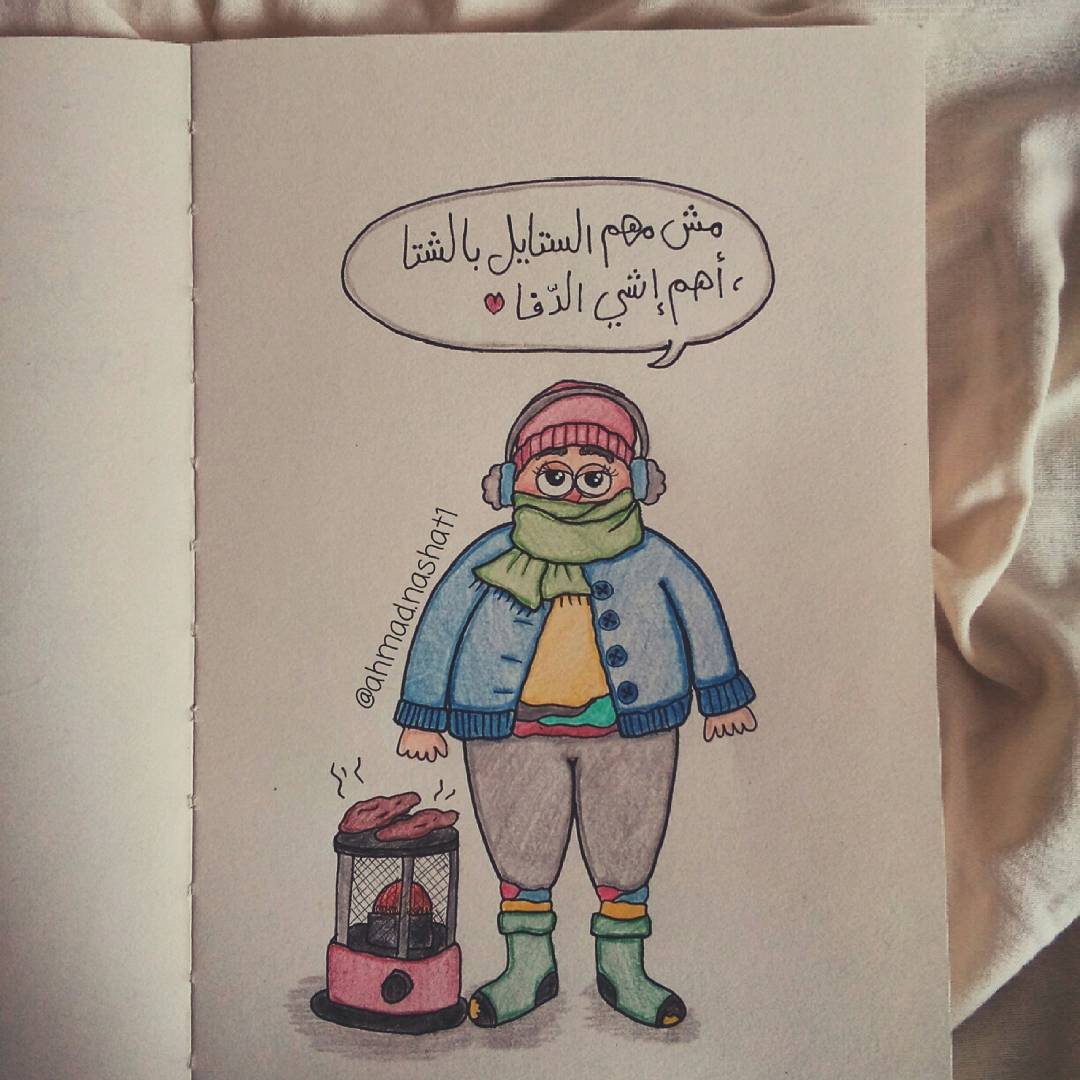 مش مهم الستايل بالشتا
، أهم إشي الدّفا ♥
@ahmad.nashat1